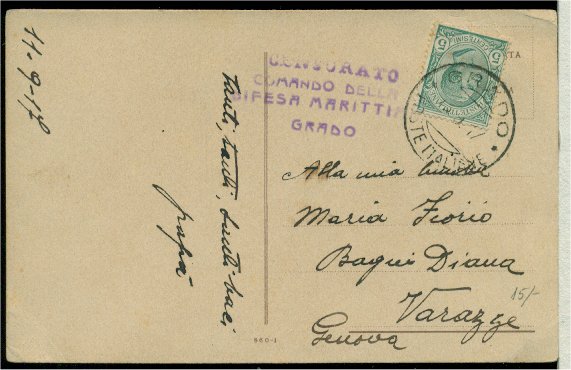 11-9-17
tanti, tanti, tanti baci
papà
CENSURATO
COMANDO DELLA
DIFESA MARITTIMA
GRADO
Alla mia
Maria Fiorio
Bagni Diana
Varazze
Genova
15/-
560-1
5 5
POSTE ITALIANE